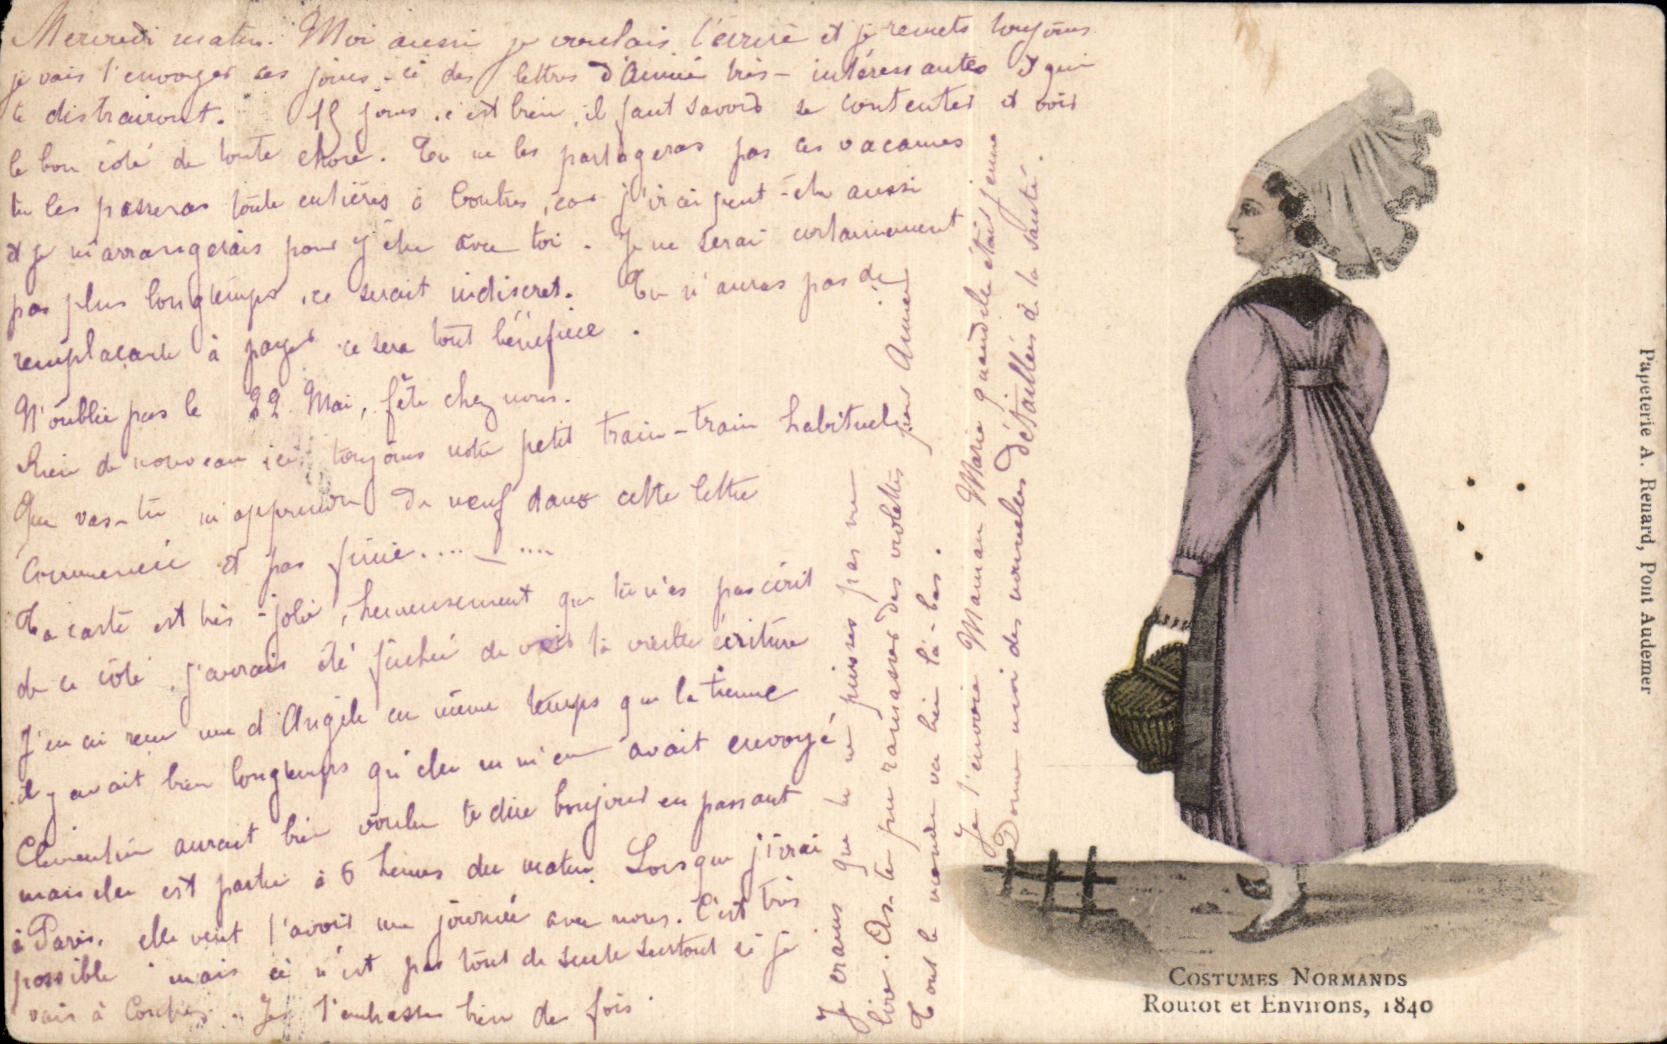 Mercredi matin. Moi aussi je voulais t'écrire et je remets toujours
je vais t'envoyer ces jours-ci des lettres d'Aimée très-intéressantes & qui
te distrairont. 15 jours, c'est bien, il faut savoir se contenter et voir
le bon côté de toute chose. Tu ne les partageras pas ces vacances
tu les passeras toute entières à Contres, car j'irai peut-être aussi
et je m'arrangerais pour y être avec toi. Je ne serai certainement
pas plus longtemps, ce serait indiscret. Tu n'auras pas de
remplaçante à payer ce sera tout bénéfice.
N'oublie pas le 22 Mai, fête chez nous.
Rien de nouveau ici, toujours notre petit train-train habituel
Que vas-tu m'apprendre de neuf dans cette lettre
commencée et pas finie....
Ta carte est très-jolie, heureusement que tu n'as pas écrit
de ce côté, j'aurais été fâchée de voir ta vieille écriture
J'en ai reçu une d'Angèle en même temps que la tienne
il y avait bien longtemps qu'elle ne m'en avait envoyé
Clémentine aurait bien voulu te dire bonjour en passant
mais elle est partie à 6 heures du matin. Lorsque j'irai
à Paris, elle veut t'avoir une journée avec nous. C'est très
possible mais ce n'est pas tout de suite surtout si je
vais à . Je t'embrasse bien des fois.
Je crains que tu ne puisses pas me
lire. As-tu pu ramasser des violettes pour Aimée
Tout le monde va bien là-bas.
Je t'envoie Maman Marie quand elle était jeune
Donne moi des nouvelles détaillées de ta santé.
Papeterie A. Renard, Pont Audemer
COSTUMES NORMANDS
ROUTOT ET ENVIRONS, 1840